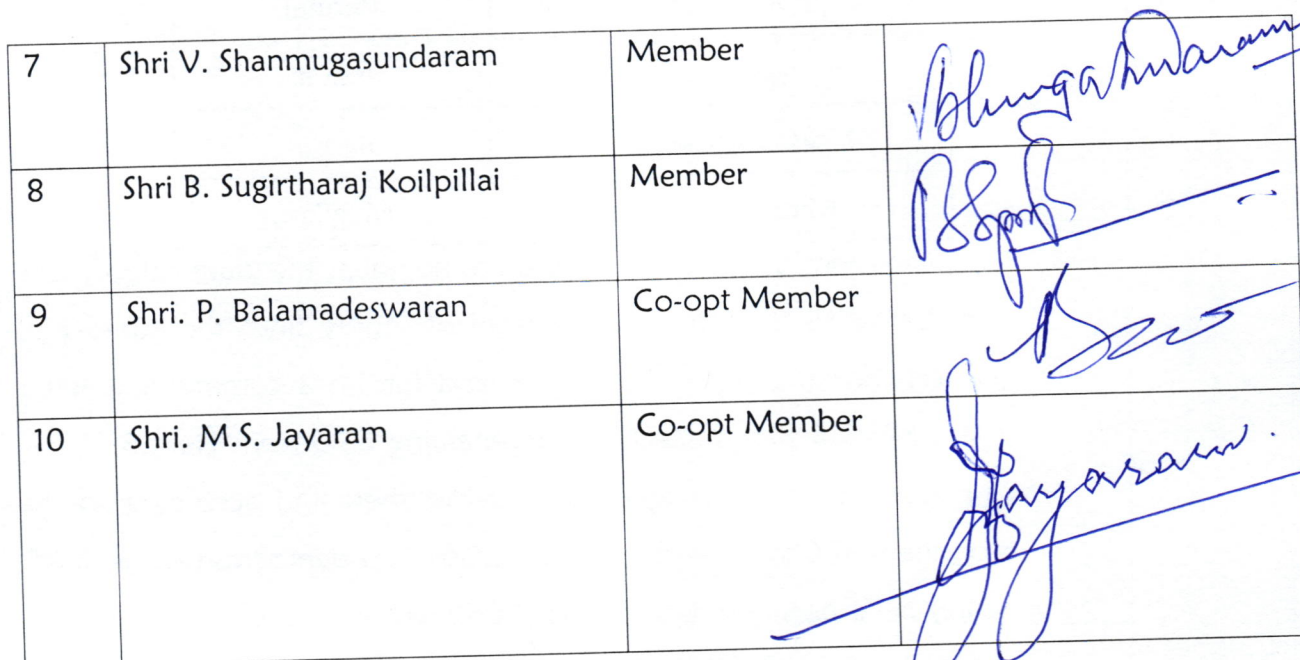 7 Shri V. Shanmugasundaram Member
8 Shri B. Sugirtharaj Koilpillai Member
9 Shri. P. Balamadeswaran Co-opt Member
10 Shri. M.S. Jayaram Co-opt Member Jayaram.